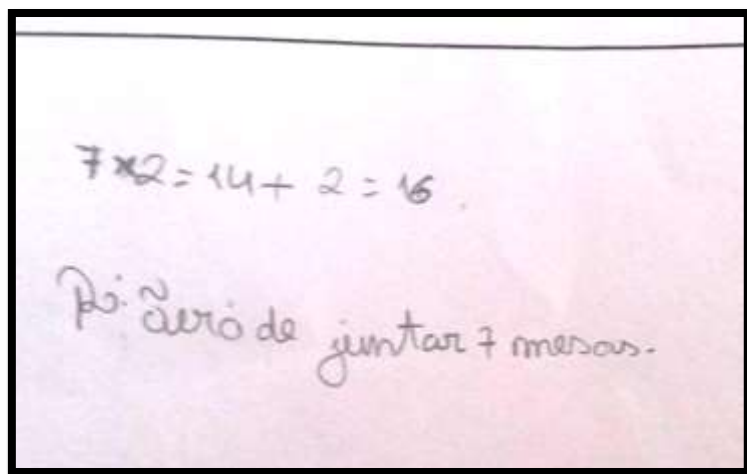 7x2=14+ 2 = 16.
R: Terá de juntar 7 mesas.